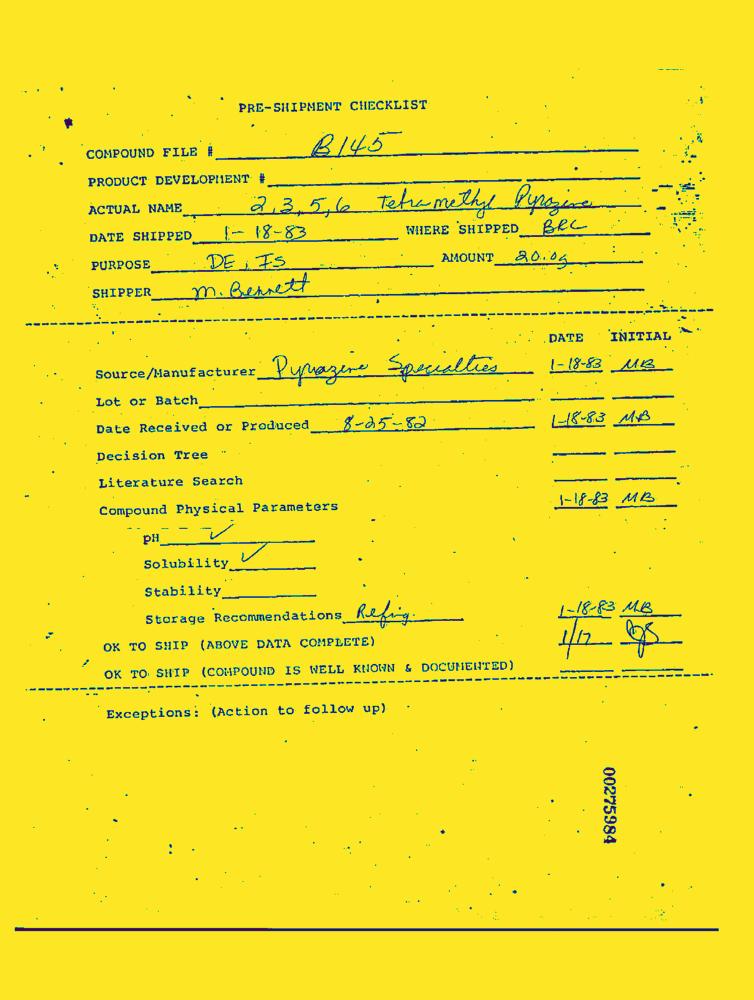 PRE-SHIPMENT CHECKLIST
COMPOUND FILE # B145
PRODUCT DEVELOPMENT #
ACTUAL NAME 2,3,5,6 Tetramethyl Pyrazine
DATE SHIPPED 1-18-83 WHERE SHIPPED BRC
PURPOSE DE, IS AMOUNT 20.0g
SHIPPER M. Bennett
DATE INITIAL
Source/Manufacturer Pyrazine Specialties 1-18-83 MB
Lot or Batch
Date Received or Produced 8-25-82 1-18-83 MB
Decision Tree
Literature Search
Compound Physical Parameters 1-18-83 MB
pH ✓
Solubility ✓
Stability
Storage Recommendations Refrig. 1-18-83 MB
OK TO SHIP (ABOVE DATA COMPLETE) 1/17
OK TO SHIP (COMPOUND IS WELL KNOWN & DOCUMENTED)
Exceptions: (Action to follow up)
00275984